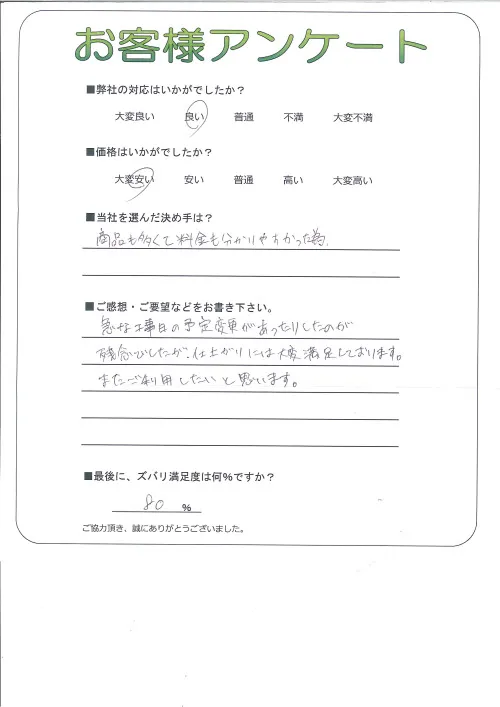 お客様アンケート
■弊社の対応はいかがでしたか？
大変良い 良い 普通 不満 大変不満
■価格はいかがでしたか？
大変安い 安い 普通 高い 大変高い
■当社を選んだ決め手は？
商品も多くて料金も分かりやすかった為.
■ご感想・ご要望などをお書き下さい。
急な工事日の予定変更があったりしたのが
残念でしたが、仕上がりには大変満足しております。
またご利用したいと思います。
■最後に、ズバリ満足度は何％ですか？
80 %
ご協力頂き、誠にありがとうございました。